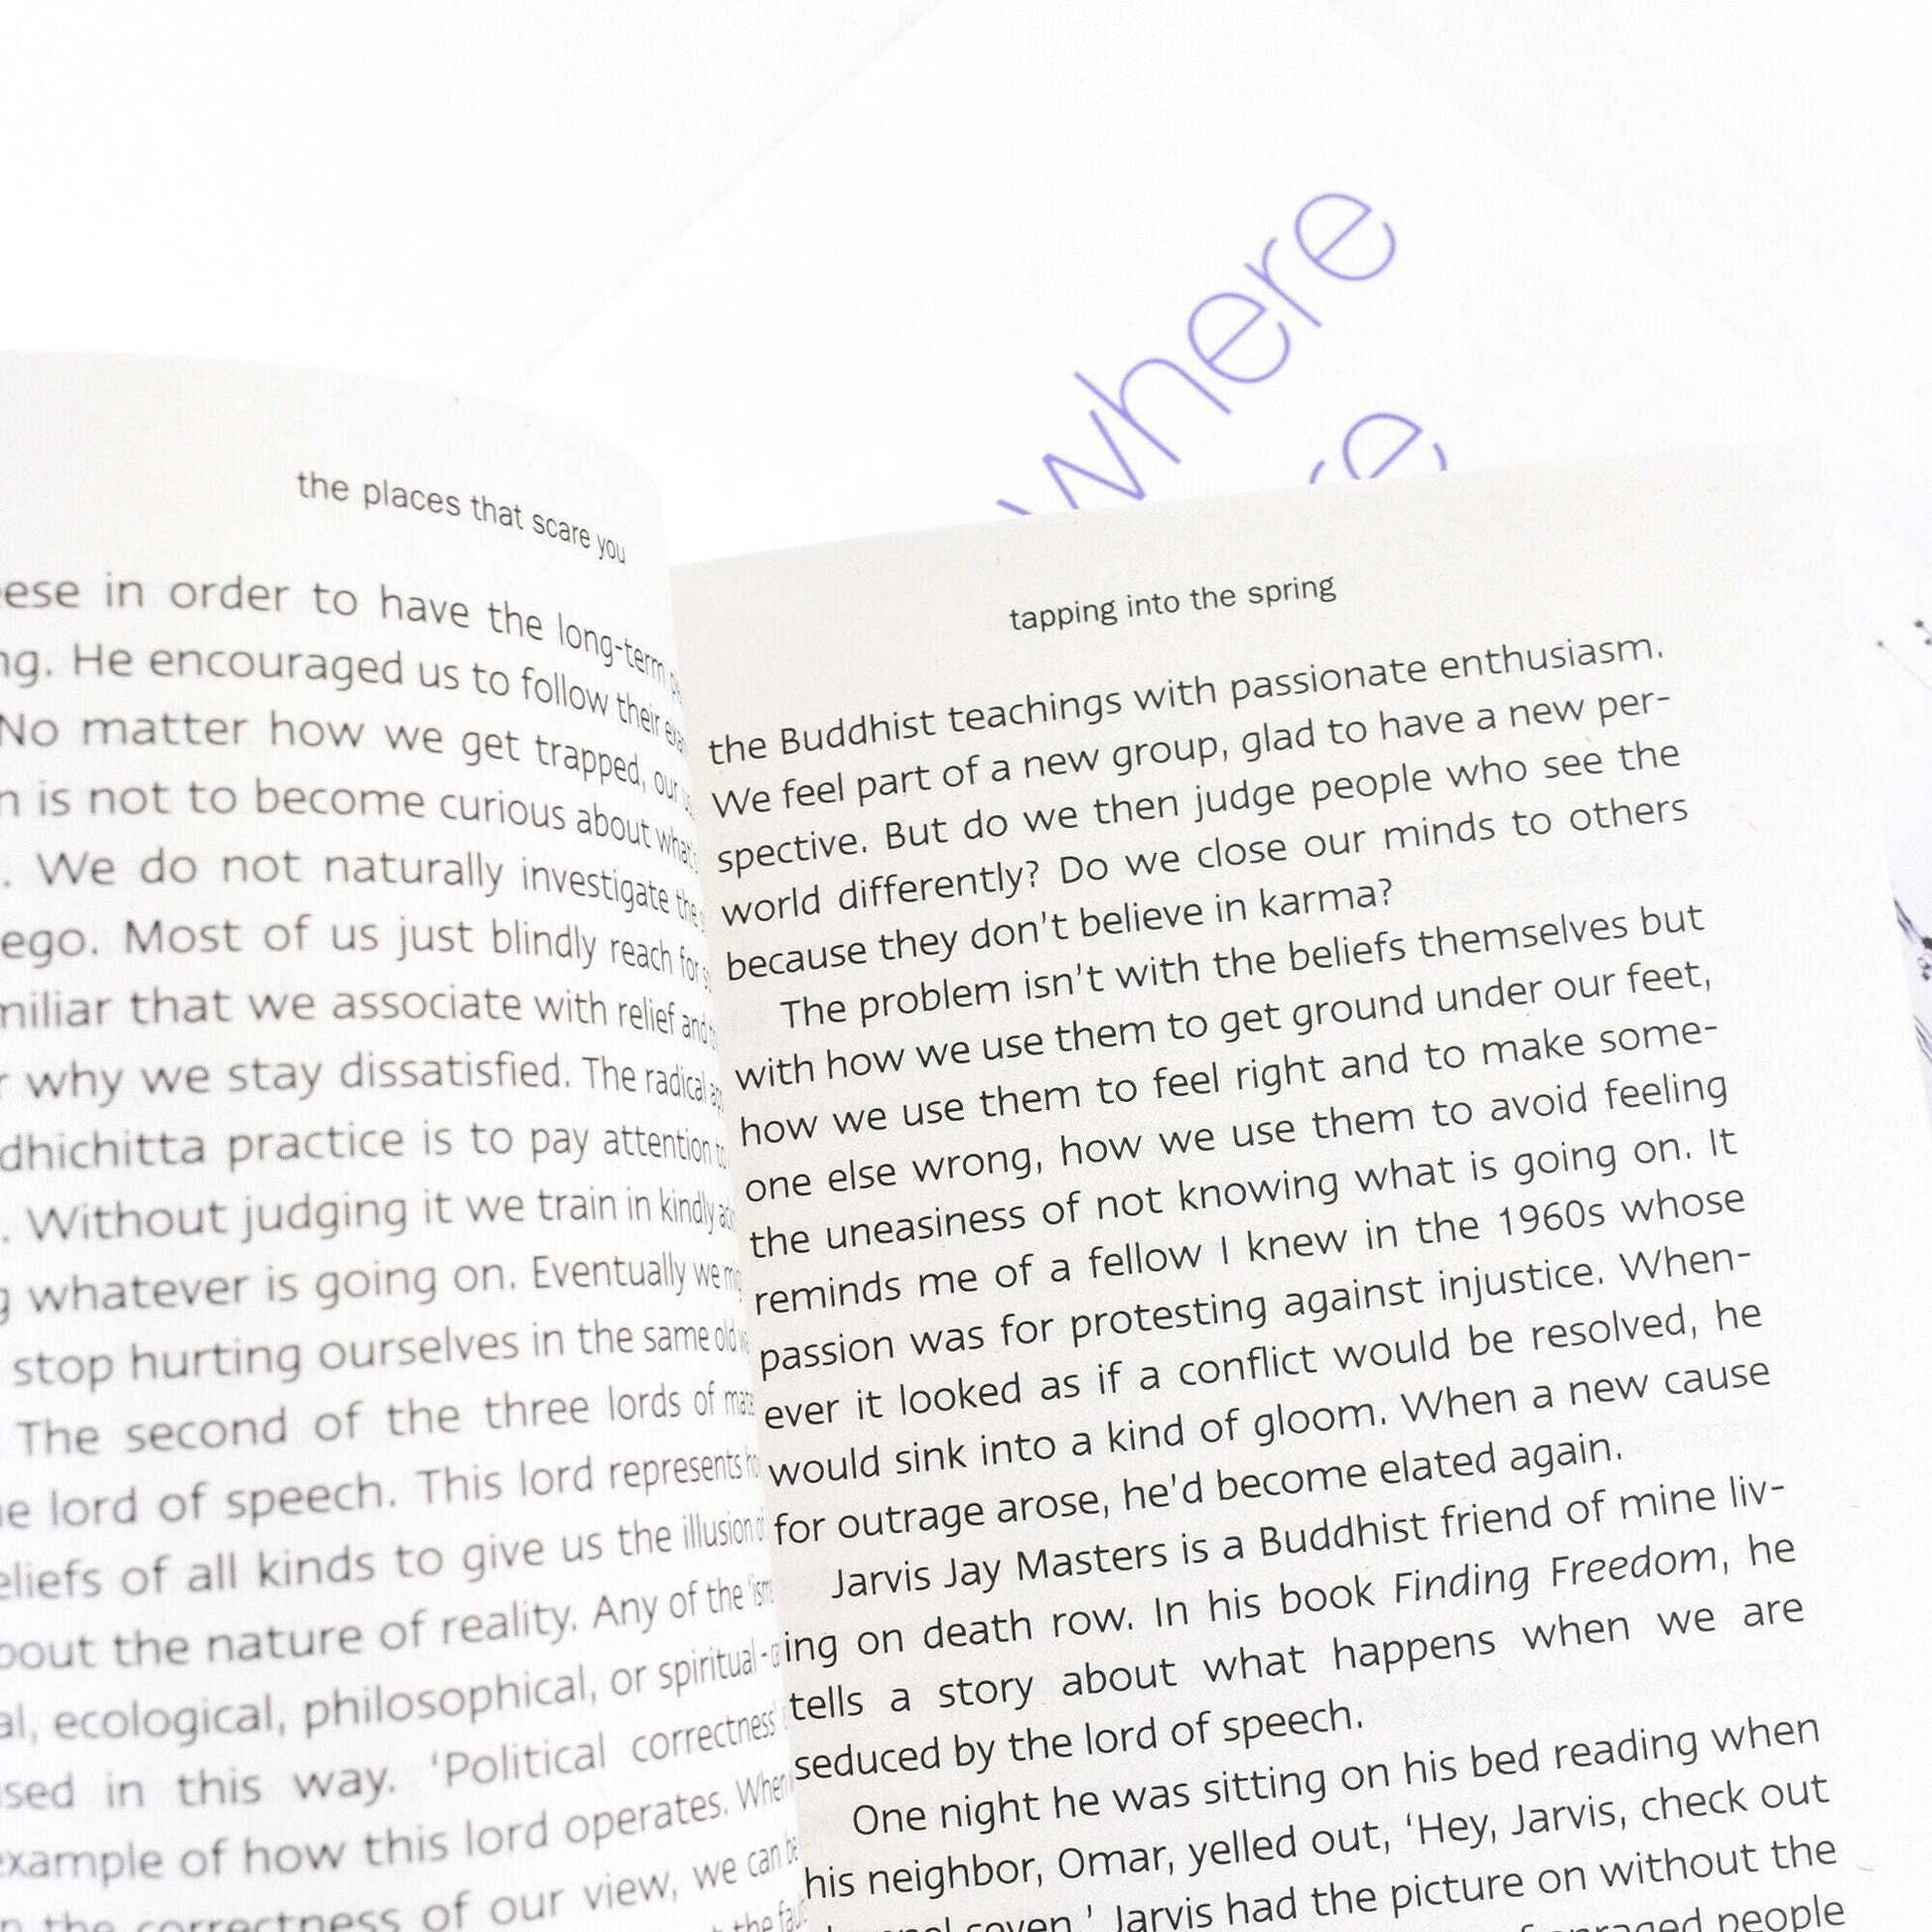 where
re,
the places that scare you
ese in order to have the long-term
ng. He encouraged us to follow their
No matter how we get trapped, our
n is not to become curious about what
. We do not naturally investigate the
ego. Most of us just blindly reach for
miliar that we associate with relief and
r why we stay dissatisfied. The radical
dhichitta practice is to pay attention
. Without judging it we train in kindly
g whatever is going on. Eventually we
stop hurting ourselves in the same old
The second of the three lords of
e lord of speech. This lord represents
eliefs of all kinds to give us the illusion
bout the nature of reality. Any of the
al, ecological, philosophical, or spiritual-
sed in this way. ‘Political correctness
example of how this lord operates. When
n the correctness of our view, we can be
t the
tapping into the spring
the Buddhist teachings with passionate enthusiasm.
We feel part of a new group, glad to have a new per-
spective. But do we then judge people who see the
world differently? Do we close our minds to others
because they don't believe in karma?
The problem isn't with the beliefs themselves but
with how we use them to get ground under our feet,
how we use them to feel right and to make some-
one else wrong, how we use them to avoid feeling
the uneasiness of not knowing what is going on. It
reminds me of a fellow I knew in the 1960s whose
passion was for protesting against injustice. When-
ever it looked as if a conflict would be resolved, he
would sink into a kind of gloom. When a new cause
for outrage arose, he'd become elated again.
Jarvis Jay Masters is a Buddhist friend of mine liv-
ing on death row. In his book Finding Freedom, he
tells a story about what happens when we are
seduced by the lord of speech.
One night he was sitting on his bed reading when
his neighbor, Omar, yelled out, ‘Hey, Jarvis, check out
seven.’ Jarvis had the picture on without the
people